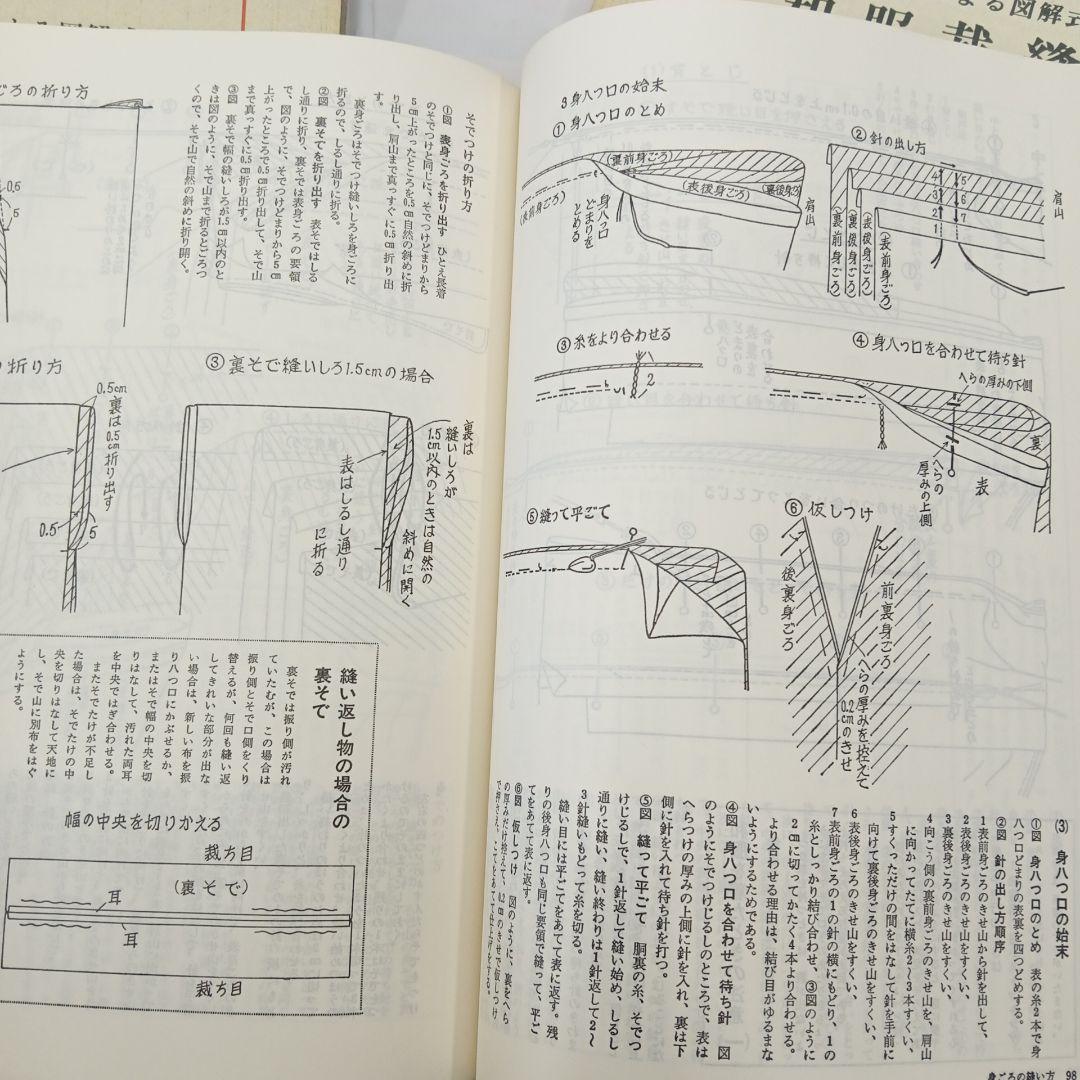 よる図解式
和服裁縫
ごろの折り方
そでつけの折り方
①図 表身ごろを折り出す ひとえ長着
のそでつけと同じに、そでつけどまりから
5cm上がったところを0.5自然の斜めに折
り出し、肩山まで真っすぐに0.5折り出
す。
裏身ごろはそでつけ縫いしろを身ごろに
折るので、しるし通りに折る。
②図 裏そでを折り出す 表そではしる
し通りに折り、裏そでは表身ごろの要領
で、図のように、そでつけどまりから5cm
上がったところで0.5折り出して、そで山
まで真っすぐに0.5折り出す。
③図 裏そで幅の縫いしろが1.5以内のと
きは図のように、そで山まで折るとごろつ
くので、そで山で自然の斜めに折り開く。
0.5
5
の折り方
0.5cm
裏は0.5cm折り出す
0.5
5
③ 裏そで縫いしろ1.5cmの場合
裏は
縫いしろが
1.5cm以内のときは自然の
斜めに開く
表はしるし通り
に折る
縫い返し物の場合の
裏そで
裏そでは振り側が汚れ
ていたむが、この場合は
振り側とそで口側をくり
替えるが、何回も縫い返
してきれいな部分が出な
い場合は、新しい布を振
り八つ口にかぶせるか、
またはそで幅の中央を切
りはなして、汚れた両耳
を中央ではぎ合わせる。
またそでたけが不足し
た場合は、そでたけの中
央を切りはなして天地に
し、そで山に別布をはぐ
ようにする。
幅の中央を切りかえる
裁ち目
(裏そで)
耳
耳
裁ち目
3 身八つ口の始末
① 身八つ口のとめ
(裏前身ごろ)
(表後身ごろ)
(裏後身ごろ)
(表前身ごろ)
肩山
身八つ口
どまりを
とめる
② 針の出し方
4
3
2
1
5
6
7
肩山
(表前身ごろ)
(表後身ごろ)
(裏後身ごろ)
(裏前身ごろ)
③ 糸をより合わせる
2
④ 身八つ口を合わせて待ち針
へらの厚みの下側
裏
表
へらの
厚みの上側
⑤ 縫って平ごて
⑥ 仮しつけ
後裏身ごろ
前裏身ごろ
へらの厚みを控えて
0.2cmのきせ
(3) 身八つ口の始末
①図 身八つ口のとめ 表の糸2本で身
八つ口どまりの表裏を四つどめする。
②図 針の出し方順序
1表前身ごろのきせ山から針を出して、
2表後身ごろのきせ山をすくい、
3裏後身ごろのきせ山をすくい、
4向こう側の裏前身ごろのきせ山を、肩山
に向かってたてに横糸2〜3本すくい、
5すくっただけの間をはなして針を手前に
向けて裏後身ごろのきせ山をすくい、
6表後身ごろのきせ山をすくい、
7表前身ごろの1の針の横にもどり、1の
糸としっかり結び合わせ、③図のように
2cmに切ってかたく4本より合わせる。
より合わせる理由は、結び目がゆるまな
いようにするためである。
④図 身八つ口を合わせて待ち針 図
のようにそでつけじるしのところで、表は
へらつけの厚みの上側に針を入れ、裏は下
側に針を入れて待ち針を打つ。
⑤図 縫って平ごて 胴裏の糸、そでつ
けじるしで、1針返して縫い始め、しるし
通りに縫い、縫い終わりは1針返して2〜
3針縫いもどって糸を切る。
縫い目には平ごてをあてて表に返す。残
りの後身八つ口も同じ要領で縫って、平ご
てをあてて表に返す。
⑥図 仮しつけ 図のように、裏をへら
の厚みだけ控えて、0.2cmのきせで仮しつけ
で押さえ、こてをあてて仕上げをする。
身ごろの縫い方 98